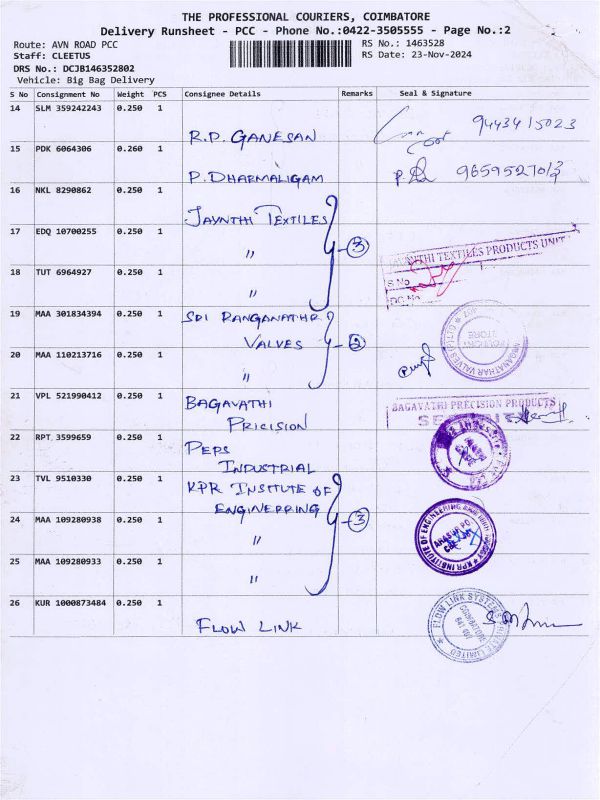 THE PROFESSIONAL COURIERS, COIMBATORE
Delivery Runsheet - PCC - Phone No.:0422-3505555 - Page No.:2
Route: AVN ROAD PCC
RS No.: 1463528
Staff: CLEETUS
RS Date: 23-Nov-2024
DRS No.: DCJB146352802
Vehicle: Big Bag Delivery
S No Consignment No Weight PCS Consignee Details Remarks Seal & Signature
14 SLM 359242243 0.250 1
R.P. GANESAN
9443415023
15 PDK 6064306 0.260 1
P. DHARMALIGAM
9659527013
16 NKL 8290862 0.250 1
JAYNTHI TEXTILES
17 EDQ 10700255 0.250 1
〃
3
JAYNTHI TEXTILES PRODUCTS UNIT
S.No
DC.No
18 TUT 6964927 0.250 1
〃
19 MAA 301834394 0.250 1
SRI RANGANATHR
VALVES
2
20 MAA 110213716 0.250 1
〃
RANGANATHAR VALVES (P) LTD
STORE
21 VPL 521990412 0.250 1
BAGAVATHI
PRICISION
BAGAVATHI PRECISION PRODUCTS
22 RPT 3599659 0.250 1
PEPS
INDUSTRIAL
23 TVL 9510330 0.250 1
KPR INSTITUTE OF
ENGINERRING
24 MAA 109280938 0.250 1
〃
3
KPR INSTITUTE OF ENGINEERING AND
25 MAA 109280933 0.250 1
〃
26 KUR 1000873484 0.250 1
FLOW LINK
FLOW LINK SYSTEMS PRIVATE LIMITED
COIMBATORE
641 007